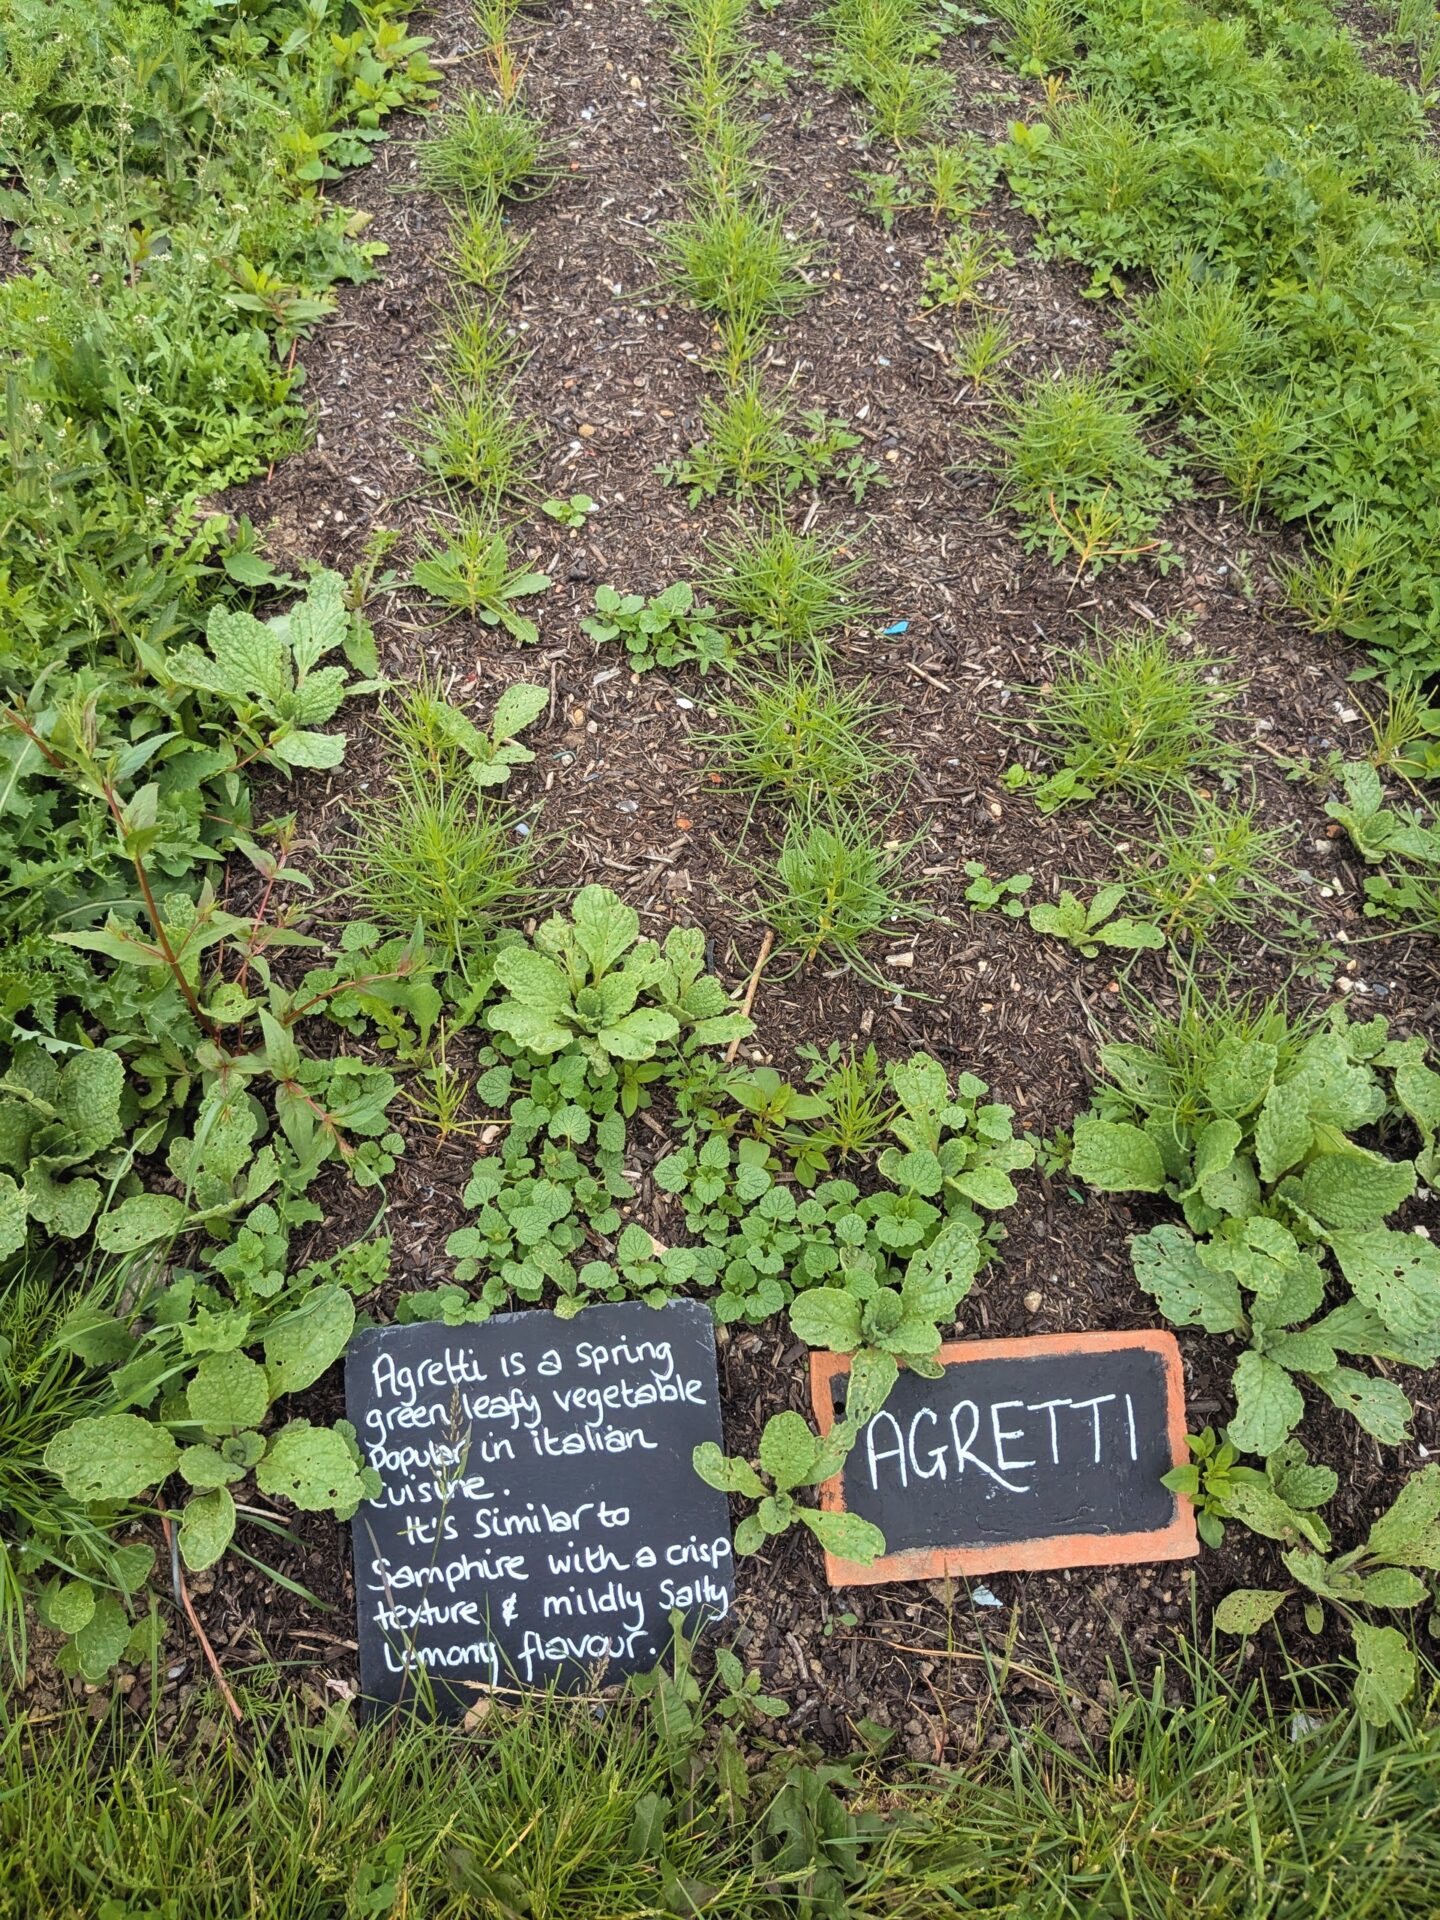 Agretti is a spring
green leafy vegetable
Popular in italian
cuisine.
It's Similar to
Samphire with a crisp
texture & mildly Salty
Lemony flavour.
AGRETTI